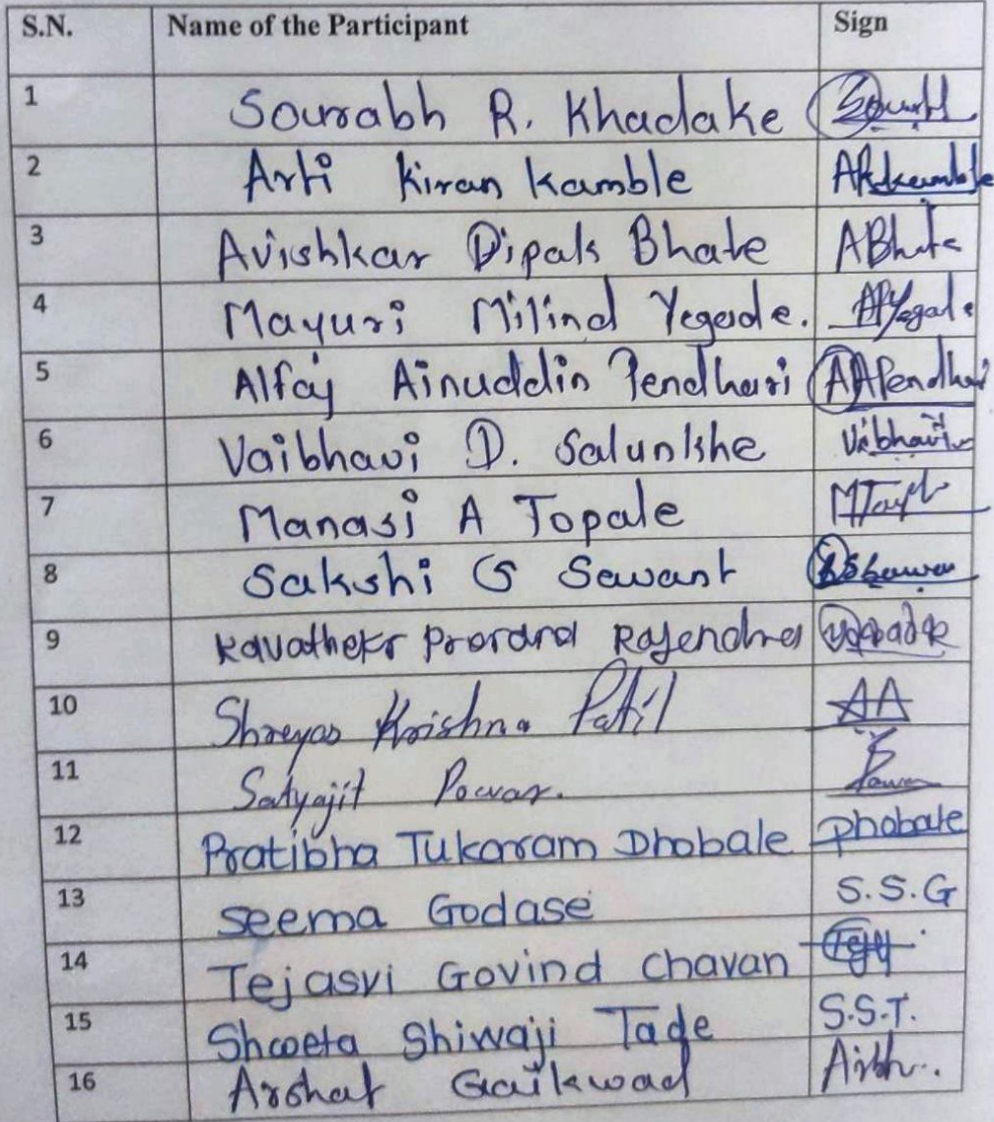 S.N. Name of the Participant Sign
1 Sourabh R. Khadake
2 Arti Kiran Kamble ARKamble
3 Avishkar Dipak Bhate ABhate
4 Mayuri Milind Yegade.
5 Alfaj Ainuddin Pendhari AAPendhari
6 Vaibhavi D. Salunkhe
7 Manasi A Topale
8 Sakshi G Sawant
9 Kavathekr Rajendra
10 Shreyas Krishna Patil AA
11 Satyajit Powar.
12 Pratibha Tukaram Dhobale Dhobale
13 Seema Godase S.S.G
14 Tejasvi Govind Chavan
15 Shweta Shiwaji Tade S.S.T.
16 Arohat Gaikwad